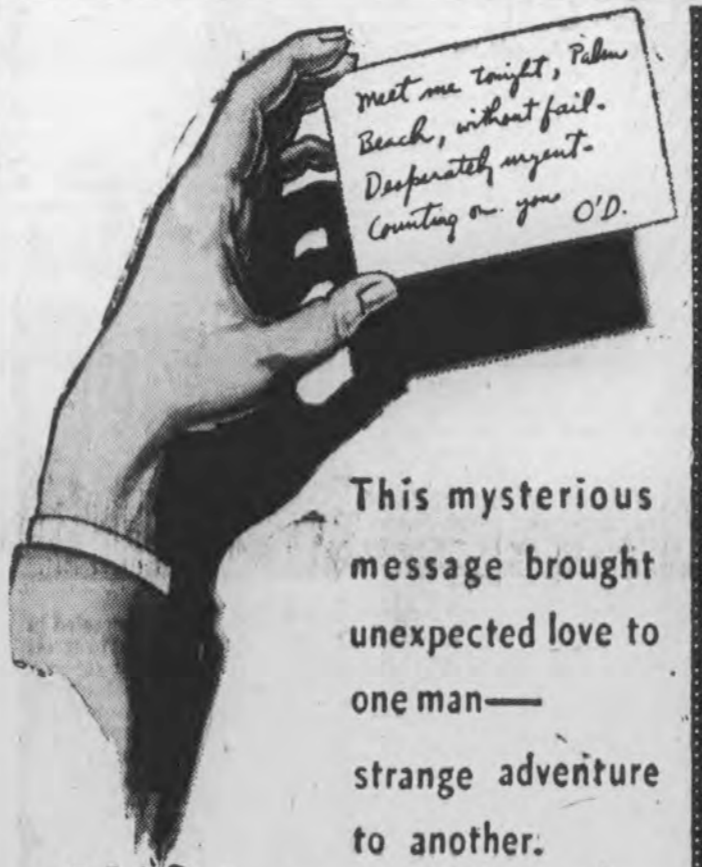 Meet me tonight, Palm
Beach, without fail.
Desperately urgent.
Counting on you
O'D.
This mysterious
message brought
unexpected love to
one man—
strange adventure
to another.